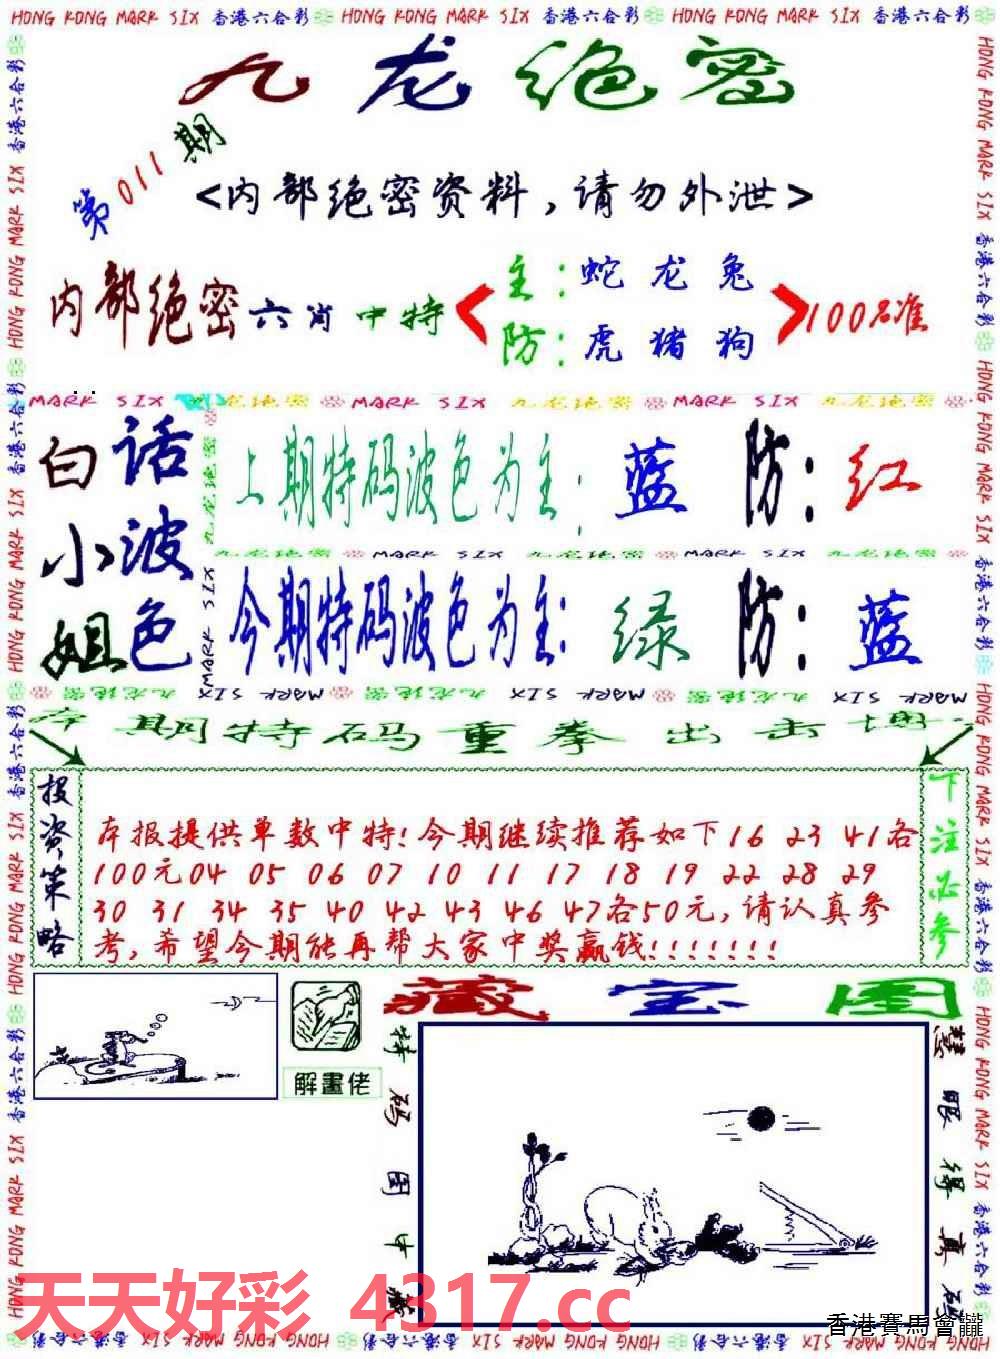 HONG KONG MARK SIX 香港六合彩 HONG KONG MARK SIX 香港六合彩 HONG KONG MARK SIX 香港六合彩
九龙绝密
第011期
<内部绝密资料,请勿外泄>
内部绝密六肖中特
主:蛇 龙 兔
防:虎 猪 狗
100%准
MARK SIX 九龙绝密 MARK SIX 九龙绝密 MARK SIX 九龙绝密
白小姐
话波色
上期特码波色为主: 蓝 防: 红
九龙绝密 MARK SIX 九龙绝密 MARK SIX 九龙绝密
今期特码波色为主: 绿 防: 蓝
本期特码重拳出击
投资策略
本报提供单数中特!今期继续推荐如下16 23 41各
100元04 05 06 07 10 11 17 18 19 22 28 29
30 31 34 35 40 42 43 46 47各50元,请认真参
考,希望今期能再帮大家中奖赢钱!!!!!!!
下注必参
藏宝图
解畫佬
特码图中藏
慧眼得真码
天天好彩 4317.cc
香港賽馬會